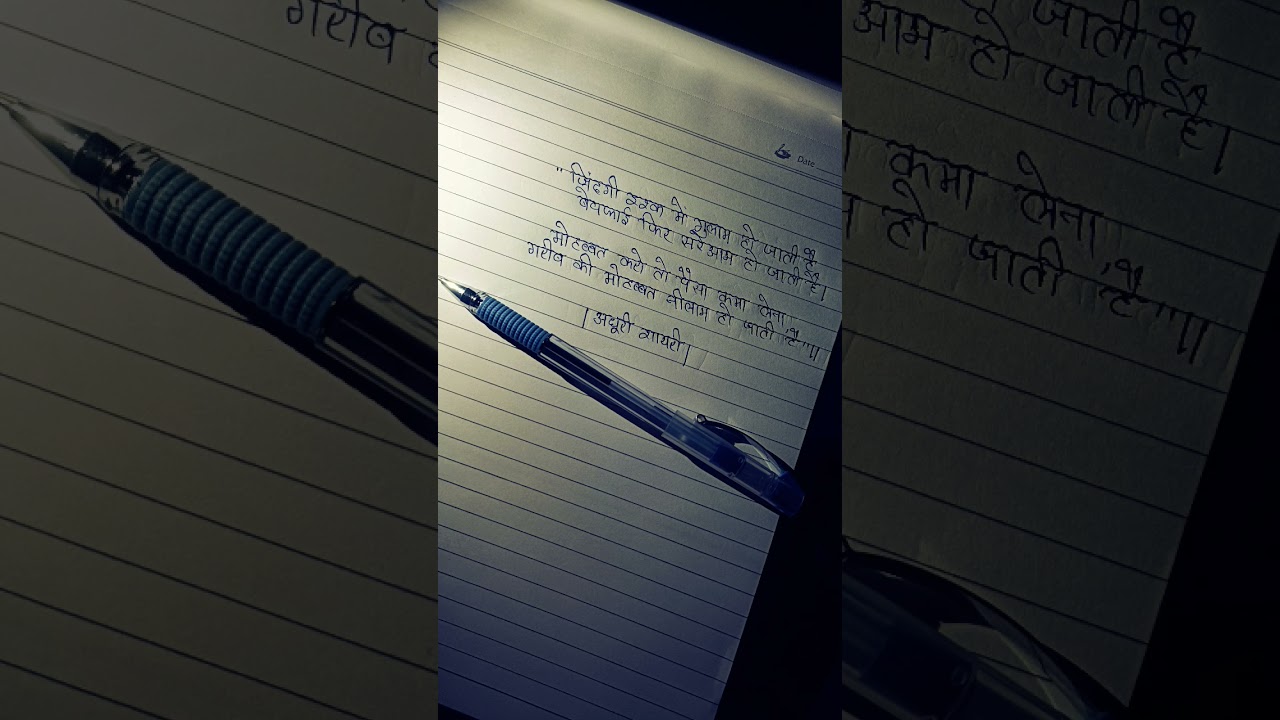 Date
" ज़िंदगी इश्क में गुलाम हो जाती है
बेवफाई फिर सरेआम हो जाती है।
मोहब्बत करो तो पैसा कमा लेना,
गरीब की मोहब्बत नीलाम हो जाती है"॥
| अधूरी शायरी |